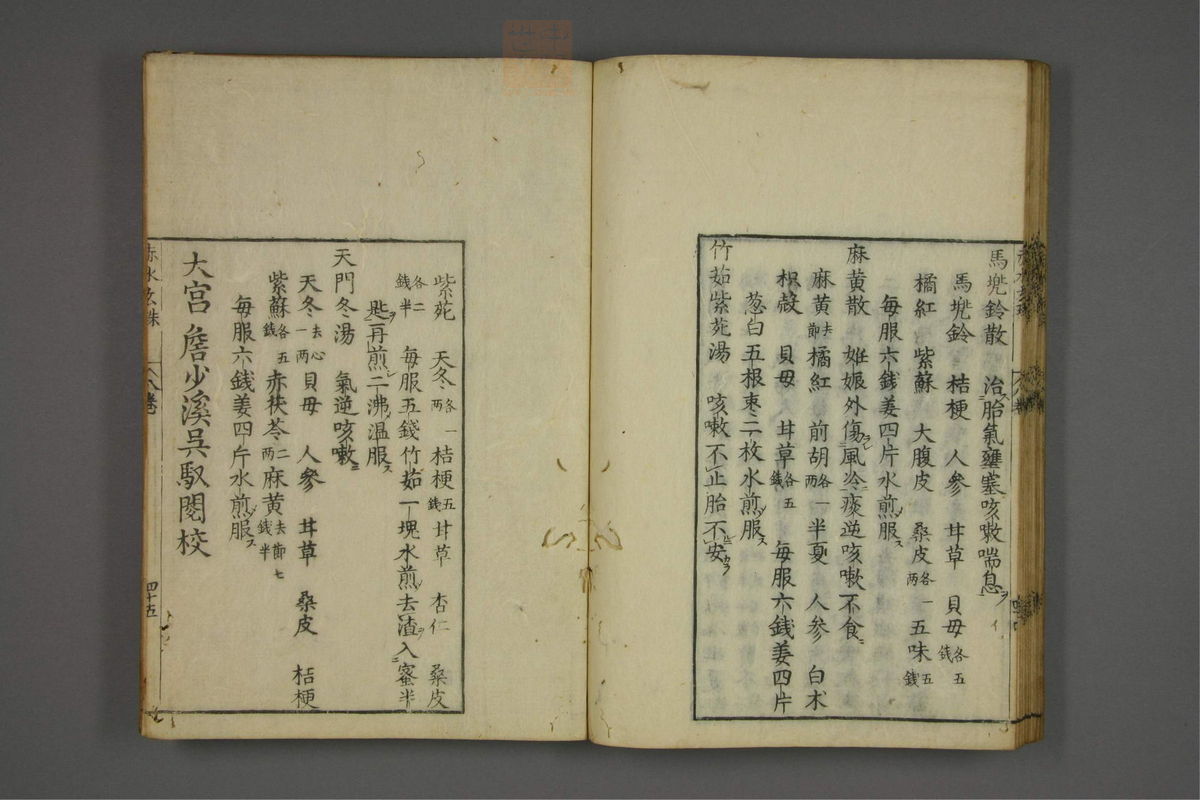 馬兠鈴散　治胎氣壅塞咳嗽喘息
馬兠鈴　桔梗　人參　甘草　貝母各五錢
橘紅　紫蘇　大腹皮　桑皮各一两　五味五錢
每服六錢姜四片水煎服
麻黄散　姙娠外傷風冷痰逆咳嗽不食
麻黄去節　橘紅　前胡各一两　半夏　人參　白术
枳殼　貝母　甘草各五錢　每服六錢姜四片
葱白五根棗二枚水煎服
竹茹紫菀湯　咳嗽不止胎不安
紫菀　天冬各一两　桔梗五錢　甘草　杏仁　桑皮
各二錢半　每服五錢竹茹一塊水煎去渣入蜜半
匙再煎二沸溫服
天門冬湯　氣逆咳嗽
天冬去心一两　貝母　人參　甘草　桑皮　桔梗
紫蘇各五錢　赤茯苓二两　麻黄去節七錢半
每服六錢姜四片水煎服
大宫詹少溪吴馭閱校
赤水玄珠　卷
四十五